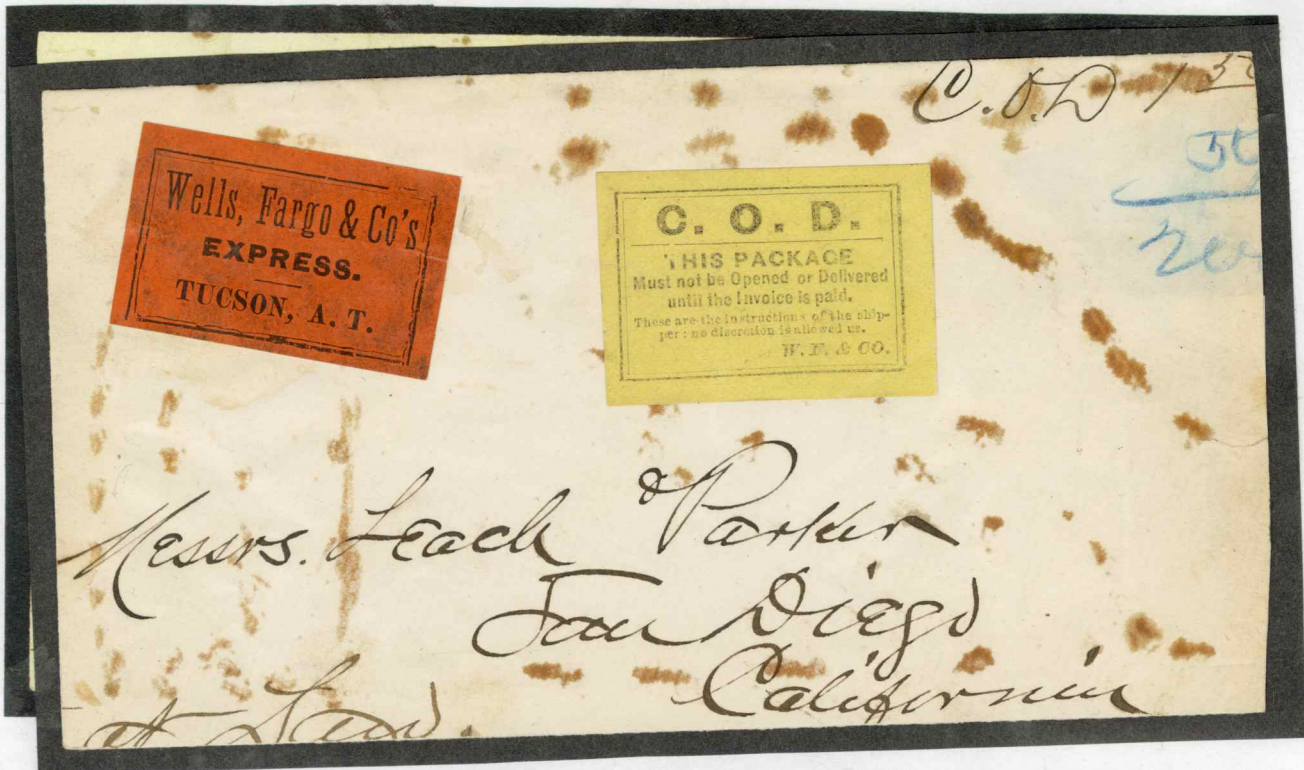 C.O.D 1 50
50
200
Wells, Fargo & Co's
EXPRESS.
TUCSON, A. T.
C. O. D.
THIS PACKAGE
Must not be Opened or Delivered
until the Invoice is paid.
These are the instructions of the ship-
per: no discretion is allowed us.
W. F. & CO.
Messrs. Leach & Parker
San Diego
California
at Law.